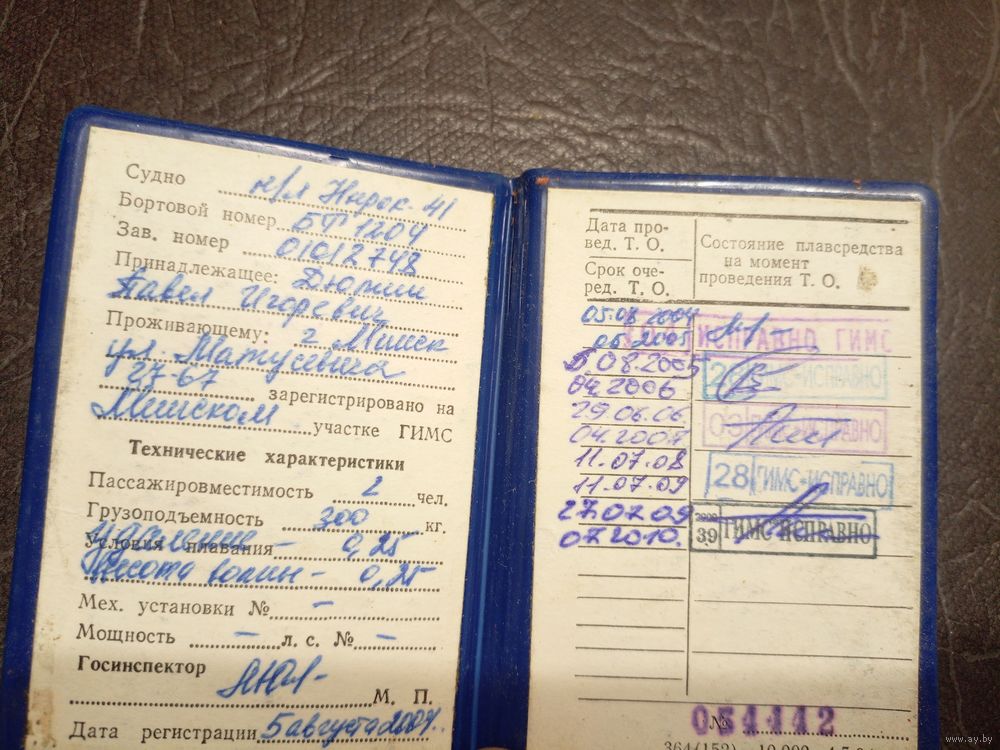 Судно н/л Нарос-41
Бортовой номер БТ 1204
Зав. номер 01012748
Принадлежащее:
Павел Игоревич
Проживающему: г Минск
ул. Матусевича
27-67 зарегистрировано на
Минском участке ГИМС
Технические характеристики
Пассажировместимость 2 чел.
Грузоподъемность 300 кг.
Условия плавания - 0,25
Высота волны - 0,25
Мех. установки № -
Мощность - л. с. № -
Госинспектор
М. П.
Дата регистрации 5 августа 2004.
Дата про-
вед. Т. О.
Срок оче-
ред. Т. О.
Состояние плавсредства
на момент
проведения Т. О.
05.08.2004
ИСПРАВНО ГИМС
05.2005
08.2005
ГИМС-ИСПРАВНО
04.2006
29.06.06
ИСПРАВНО
04.2007
11.07.08
28 ГИМС-ИСПРАВНО
11.07.09
27.07.09
39 ГИМС ИСПРАВНО
07.2010.
№ 054442
www.ay.by